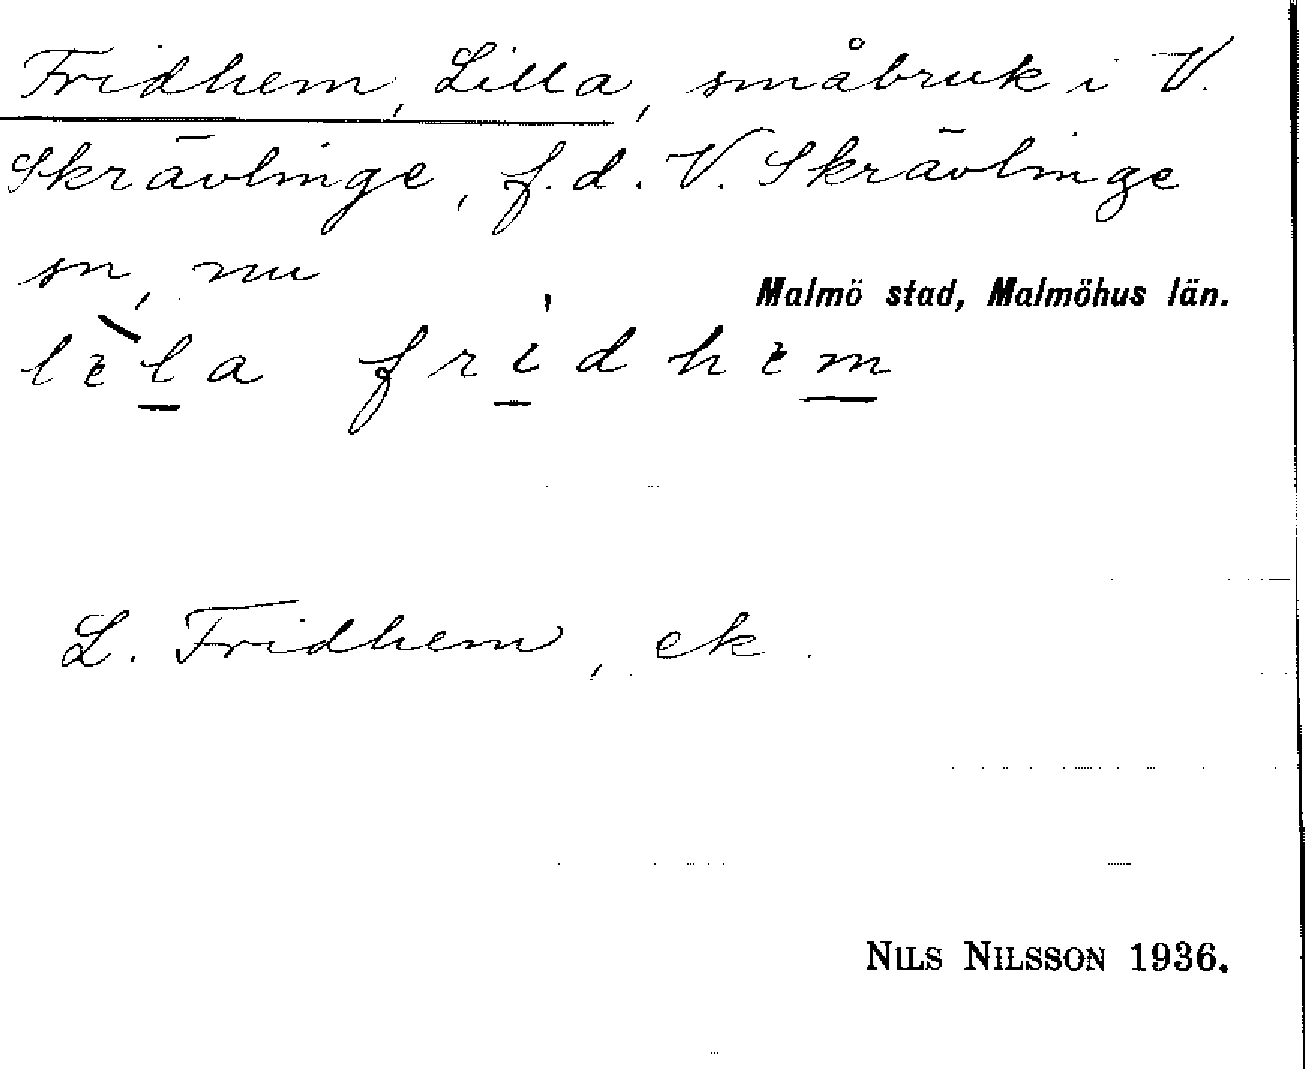 Fridhem, Lilla, småbruk i V.
Skrävlinge, f.d. V. Skrävlinge
sn, nu Malmö stad, Malmöhus län.
lèla fridhem
L. Fridhem, ek.
NILS NILSSON 1936.